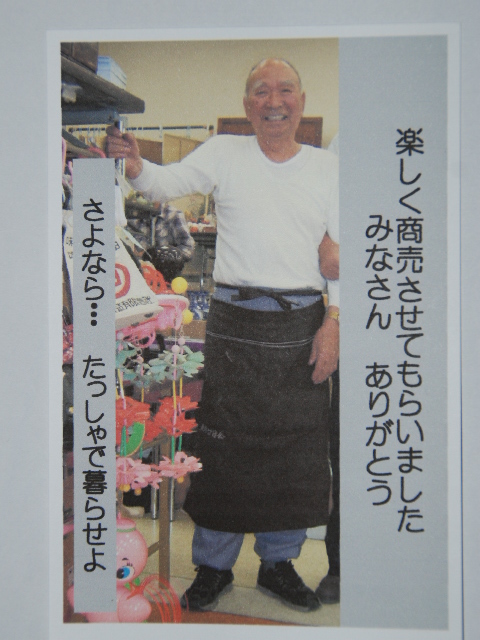 楽しく商売させてもらいました
みなさん ありがとう
さよなら… たっしゃで暮らせよ